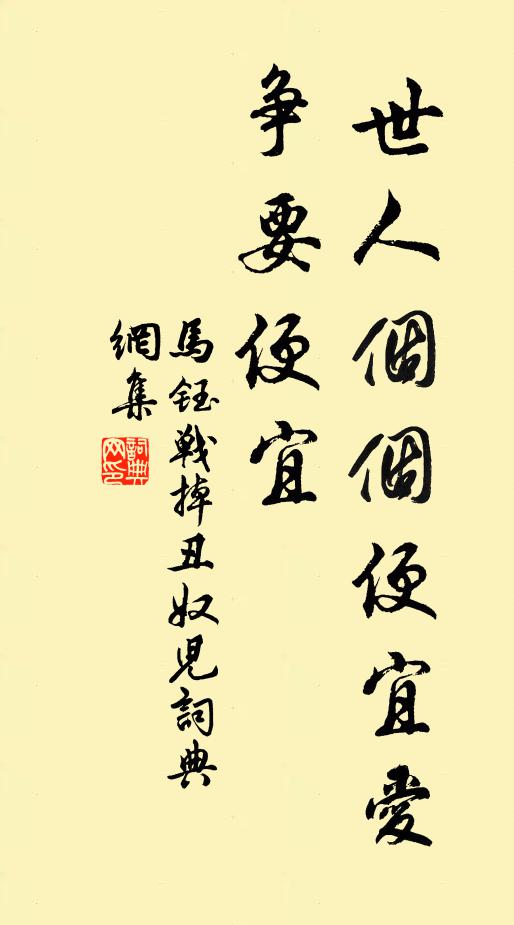 世人個個便宜愛
争要便宜
馬鈺戰掉丑奴兒詞典
網集
詞典
网印